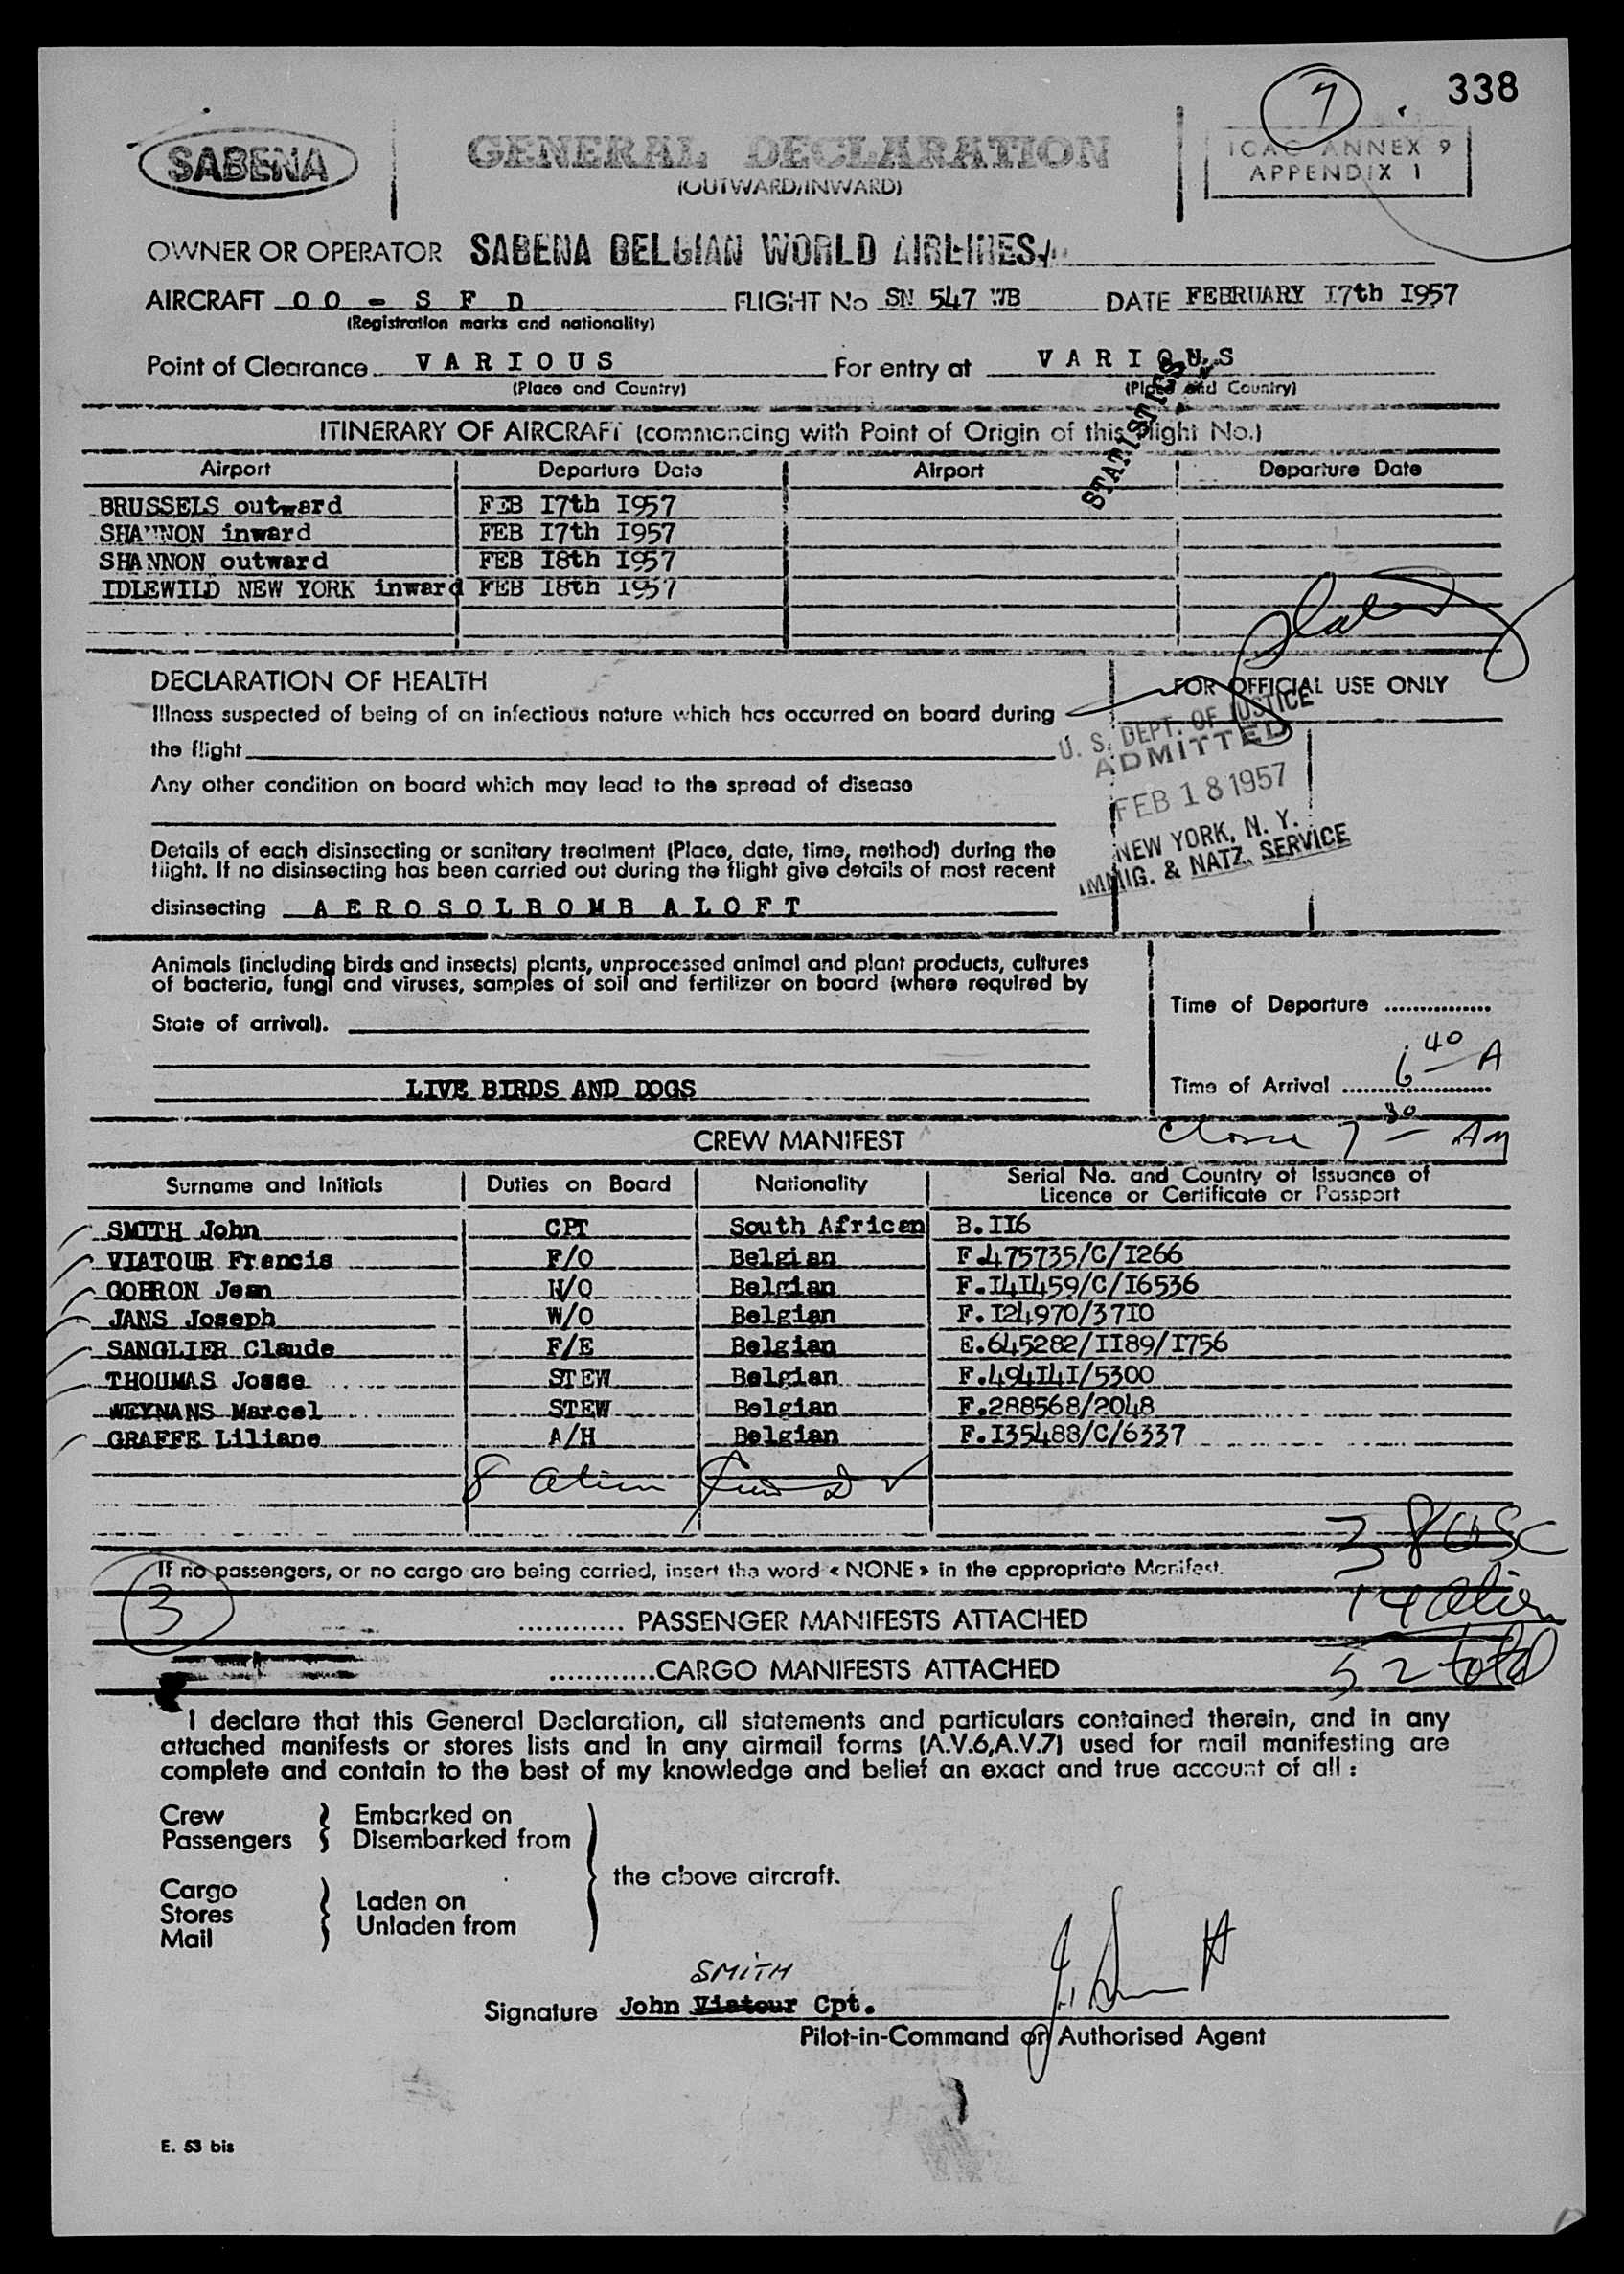 7
338
SABENA
GENERAL DECLARATION
(OUTWARD/INWARD)
ICAO ANNEX 9
APPENDIX 1
OWNER OR OPERATOR SABENA BELGIAN WORLD AIRLINES
AIRCRAFT OO - S F D FLIGHT No SN 547 WB DATE FEBRUARY I7th I957
(Registration marks and nationality)
Point of Clearance VARIOUS For entry at VARIOUS
(Place and Country) (Place and Country)
STATISTICS
ITINERARY OF AIRCRAFT (commencing with Point of Origin of this flight No.)
Airport Departure Date Airport Departure Date
BRUSSELS outward FEB I7th I957
SHANNON inward FEB I7th I957
SHANNON outward FEB I8th I957
IDLEWILD NEW YORK inward FEB I8th I957
DECLARATION OF HEALTH
FOR OFFICIAL USE ONLY
Illness suspected of being of an infectious nature which has occurred on board during
the flight
U. S. DEPT. OF JUSTICE
ADMITTED
FEB 18 1957
NEW YORK, N. Y.
IMMIG. & NATZ. SERVICE
Any other condition on board which may lead to the spread of disease
Details of each disinsecting or sanitary treatment (Place, date, time, method) during the
flight. If no disinsecting has been carried out during the flight give details of most recent
disinsecting AEROSOLBOMB ALOFT
Animals (including birds and insects) plants, unprocessed animal and plant products, cultures
of bacteria, fungi and viruses, samples of soil and fertilizer on board (where required by
State of arrival).
LIVE BIRDS AND DOGS
Time of Departure ................
Time of Arrival 6 40 A
Close 7 30 AM
CREW MANIFEST
Surname and Initials Duties on Board Nationality Serial No. and Country of Issuance of
Licence or Certificate or Passport
SMITH John CPT South African B.II6
VIATOUR Francis F/O Belgian F.475735/C/I266
GOBRON Jean N/O Belgian F.I4I459/C/I6536
JANS Joseph W/O Belgian F.I24970/37I0
SANGLIER Claude F/E Belgian E.645282/II89/I756
THOUMAS Josse STEW Belgian F.494I4I/5300
WEYNANS Marcel STEW Belgian F.288568/2048
GRAFFE Liliane A/H Belgian F.I35488/C/6337
8 alien
38 USC
If no passengers, or no cargo are being carried, insert the word « NONE » in the appropriate Manifest.
14 alien
3
............ PASSENGER MANIFESTS ATTACHED
52 total
............CARGO MANIFESTS ATTACHED
I declare that this General Declaration, all statements and particulars contained therein, and in any
attached manifests or stores lists and in any airmail forms (A.V.6,A.V.7) used for mail manifesting are
complete and contain to the best of my knowledge and belief an exact and true account of all :
Crew Embarked on
Passengers Disembarked from
the above aircraft.
Cargo
Stores Laden on
Mail Unladen from
SMITH
Signature John Viatour Cpt. J. Smith
Pilot-in-Command or Authorised Agent
E. 53 bis